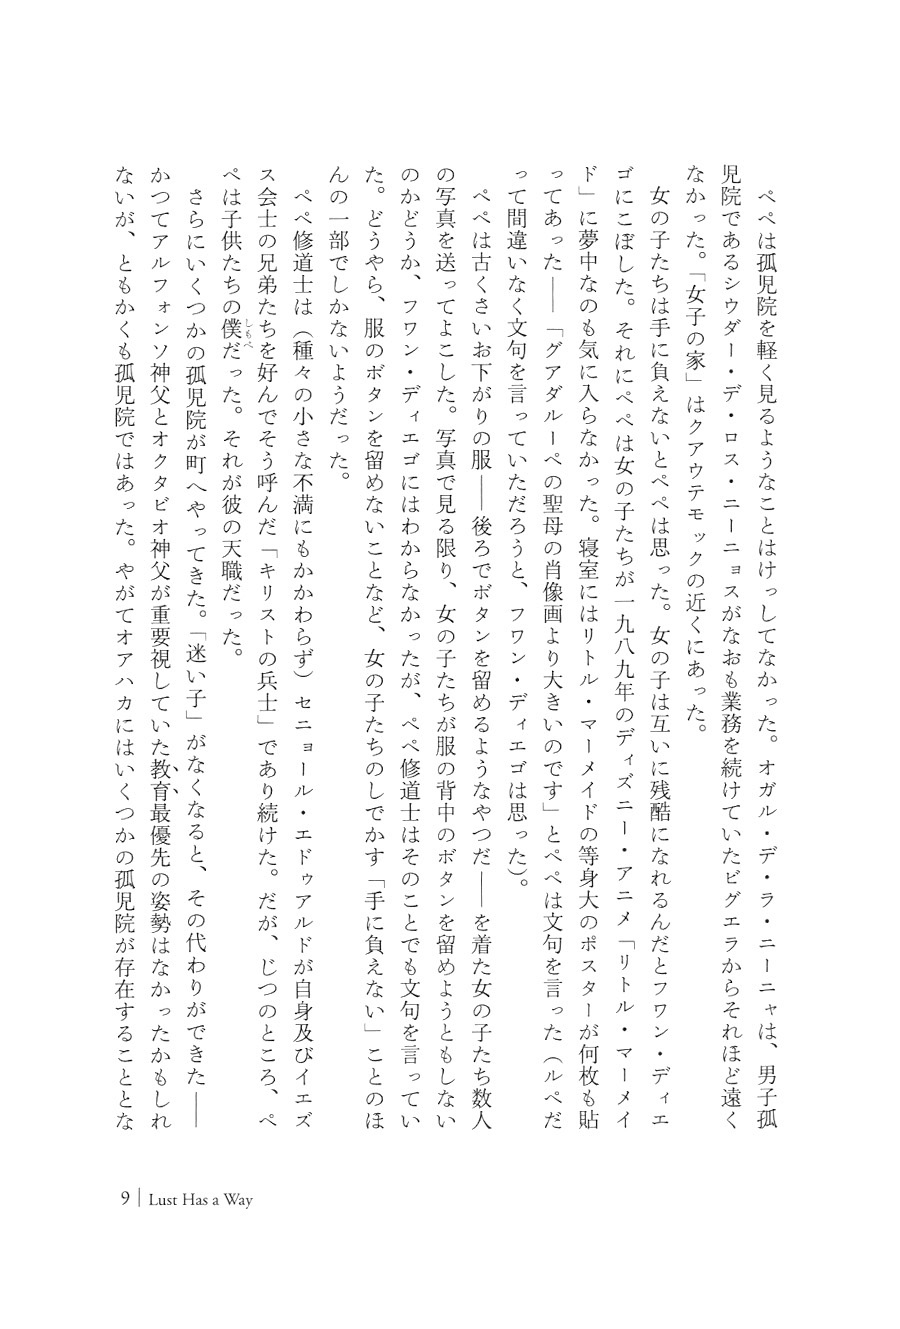 ペペは孤児院を軽く見るようなことはけっしてなかった。オガル・デ・ラ・ニーニャは、男子孤
児院であるシウダー・デ・ロス・ニーニョスがなおも業務を続けていたビグエラからそれほど遠く
なかった。「女子の家」はクアウテモックの近くにあった。
女の子たちは手に負えないとペペは思った。女の子は互いに残酷になれるんだとフワン・ディエ
ゴにこぼした。それにペペは女の子たちが一九八九年のディズニー・アニメ「リトル・マーメイ
ド」に夢中なのも気に入らなかった。寝室にはリトル・マーメイドの等身大のポスターが何枚も貼
ってあった――「グアダルーペの聖母の肖像画より大きいのです」とペペは文句を言った（ルペだ
って間違いなく文句を言っていただろうと、フワン・ディエゴは思った）。
ペペは古くさいお下がりの服――後ろでボタンを留めるようなやつだ――を着た女の子たち数人
の写真を送ってよこした。写真で見る限り、女の子たちが服の背中のボタンを留めようともしない
のかどうか、フワン・ディエゴにはわからなかったが、ペペ修道士はそのことでも文句を言ってい
た。どうやら、服のボタンを留めないことなど、女の子たちのしでかす「手に負えない」ことのほ
んの一部でしかないようだった。
ペペ修道士は（種々の小さな不満にもかかわらず）セニョール・エドゥアルドが自身及びイエズ
ス会士の兄弟たちを好んでそう呼んだ「キリストの兵士」であり続けた。だが、じつのところ、ペ
ペは子供たちの僕しもべだった。それが彼の天職だった。
さらにいくつかの孤児院が町へやってきた。「迷い子」がなくなると、その代わりができた――
かつてアルフォンソ神父とオクタビオ神父が重要視していた教育最優先の姿勢はなかったかもしれ
ないが、ともかくも孤児院ではあった。やがてオアハカにはいくつかの孤児院が存在することとな
9 | Lust Has a Way